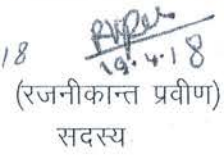 18
19.4.18
(रजनीकान्त प्रवीण)
सदस्य